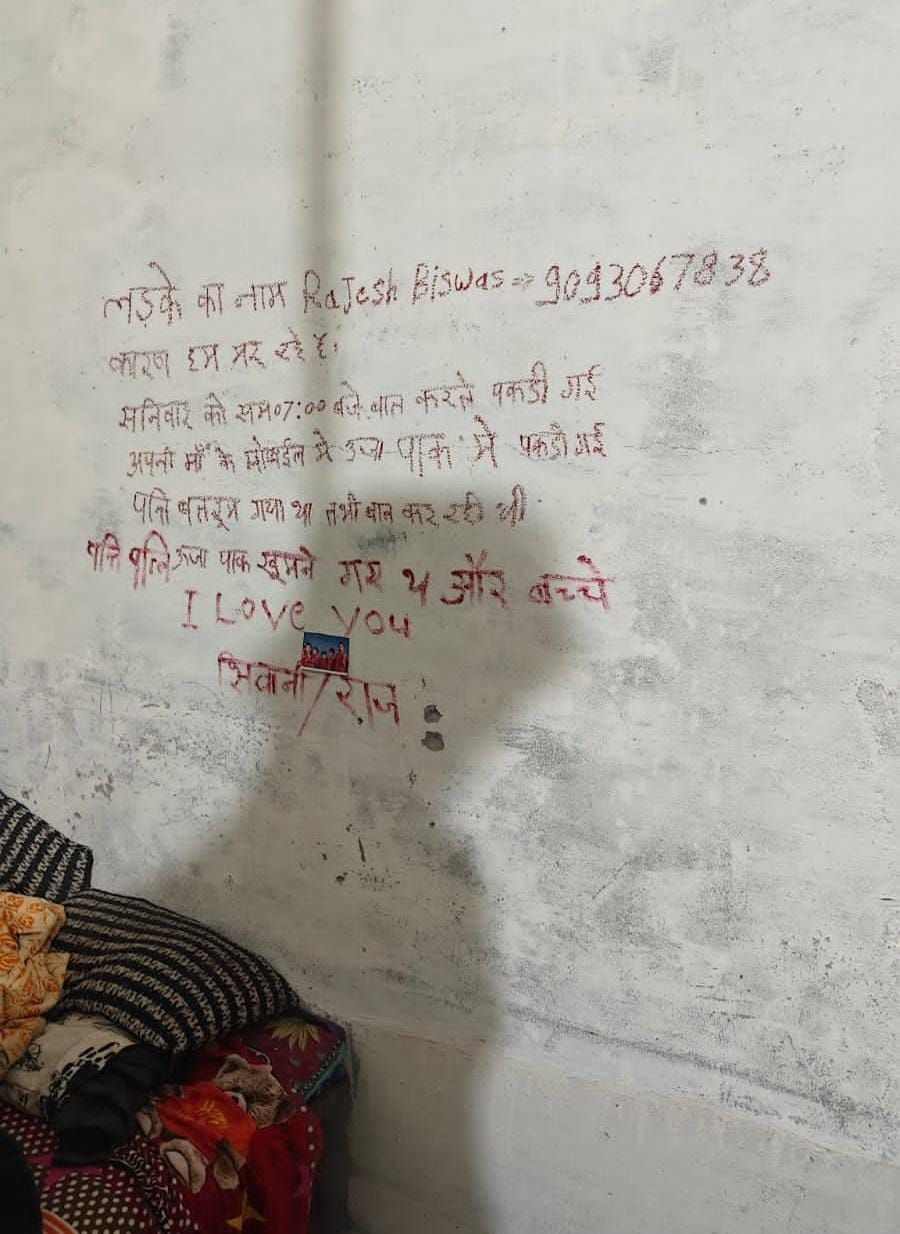 लड़के का नाम RaJesh Biswas => 9093067838
कारण हम मर रहे है।
सनिवार को सम07:00 बजे बात करते पकडी गई
अपनी माँ के मोबाईल मे उर्जा पार्क मे पकडी गई
पति बतरूम गया था तभी बात कर रही थी
पति पत्नि उर्जा पार्क घूमने गए थे और बच्चे
I Love you
सिवानी/राज